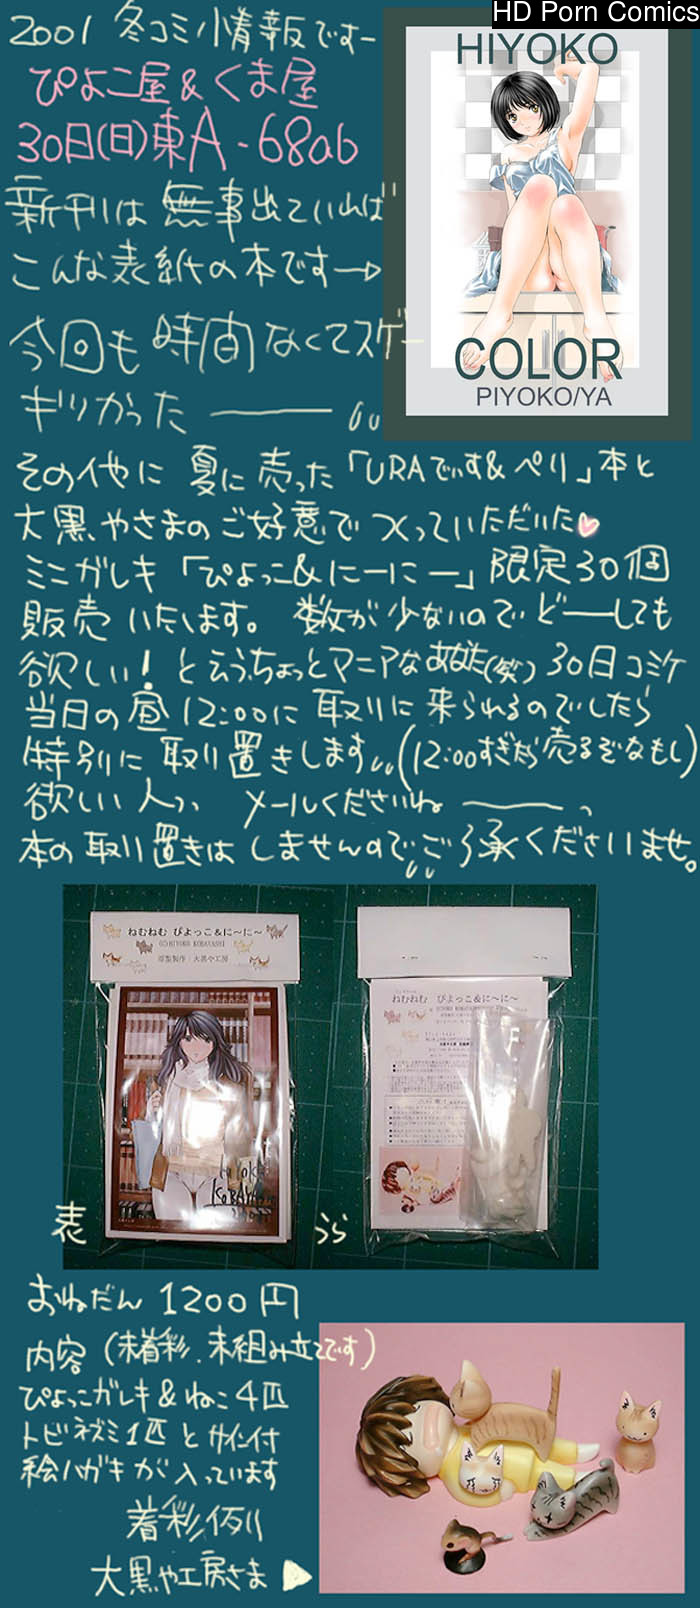 HD Porn Comics
2001 冬コミノ情報ですー
ぴよこ屋&くま屋
30日(日)東A-68ab
新刊は無事出ていれば
こんな表紙の本です→
今回も時間なくてスゲー
ギリかった ——
HIYOKO
COLOR
PIYOKO/YA
その他に 夏に売った「URAでぃす&ぺり」本と
大黒やさまのご好意でつくっていただいた♥
ミニガレキ「ぴよっこ&にーにー」限定30個
販売いたします。数が少ないのでどーしても
欲しい!と云うちょっとマニアなあなた(笑)30日コミケ
当日の昼12:00に取りに来られるのでしたら
特別に取り置きします(12:00すぎたら売るぞなもし)
欲しい人っ メールくださいねーーっ
本の取り置きはしませんのでご了承くださいませ。
ねむねむ ぴよっこ&に〜に〜
(C)HIYOKO KOBAYASHI
原型製作:大黒や工房
ねむねむ ぴよっこ&に〜に〜
表
うら
おねだん 1200円
内容(未着彩、未組み立てです)
ぴよっこガレキ&ねこ4匹
トビネズミ1匹とサイン付
絵ハガキが入っています
着彩例
大黒や工房さま ▶